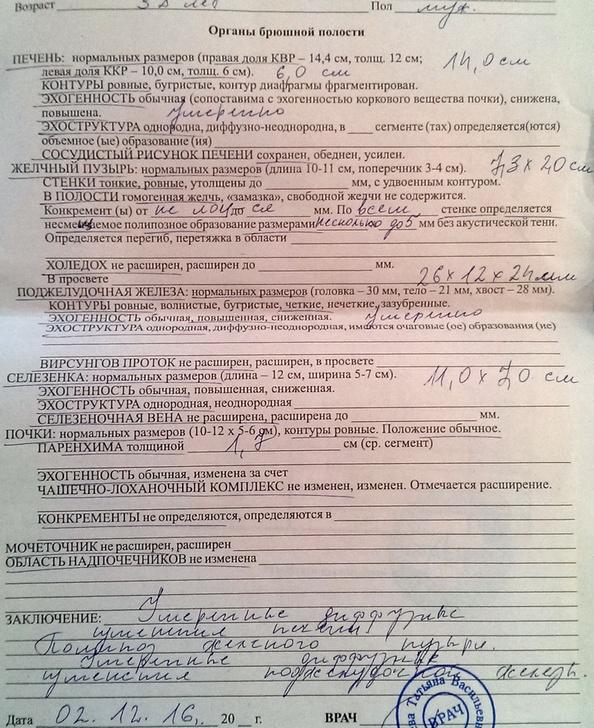 Возраст лет Пол муж.
Органы брюшной полости
ПЕЧЕНЬ: нормальных размеров (правая доля КВР – 14,4 см, толщ. 12 см; 14,0 см
левая доля ККР – 10,0 см, толщ. 6 см). 6,0 см
КОНТУРЫ ровные, бугристые, контур диафрагмы фрагментирован.
ЭХОГЕННОСТЬ обычная (сопоставима с эхогенностью коркового вещества почки), снижена,
повышена. умеренно
ЭХОСТРУКТУРА однородна, диффузно-неоднородна, в ____ сегменте (тах) определяется(ются)
объемное (ые) образование (ия)
СОСУДИСТЫЙ РИСУНОК ПЕЧЕНИ сохранен, обеднен, усилен.
ЖЕЛЧНЫЙ ПУЗЫРЬ: нормальных размеров (длина 10-11 см, поперечник 3-4 см). 7,3 х 20 см
СТЕНКИ тонкие, ровные, утолщены до ____ мм, с удвоенным контуром.
В ПОЛОСТИ гомогенная желчь, «замазка», свободной желчи не содержится.
Конкремент (ы) от не до ся мм. По всем стенке определяется
несмещаемое полипозное образование размерами несколько до 5 мм без акустической тени.
Определяется перегиб, перетяжка в области
ХОЛЕДОХ не расширен, расширен до ____ мм.
В просвете 26х12х24мм
ПОДЖЕЛУДОЧНАЯ ЖЕЛЕЗА: нормальных размеров (головка – 30 мм, тело – 21 мм, хвост – 28 мм).
КОНТУРЫ ровные, волнистые, бугристые, четкие, нечеткие, зазубренные.
ЭХОГЕННОСТЬ обычная, повышенная, сниженная. умеренно
ЭХОСТРУКТУРА однородная, диффузно-неоднородная, имеются очаговые (ое) образования (ие)
ВИРСУНГОВ ПРОТОК не расширен, расширен, в просвете
СЕЛЕЗЕНКА: нормальных размеров (длина – 12 см, ширина 5-7 см). 11,0 х 7,0 см
ЭХОГЕННОСТЬ обычная, повышенная, сниженная.
ЭХОСТРУКТУРА однородная, неоднородная
СЕЛЕЗЕНОЧНАЯ ВЕНА не расширена, расширена до ____ мм.
ПОЧКИ: нормальных размеров (10-12 х 5-6 см), контуры ровные. Положение обычное.
ПАРЕНХИМА толщиной 1,7 см (ср. сегмент)
ЭХОГЕННОСТЬ обычная, изменена за счет
ЧАШЕЧНО-ЛОХАНОЧНЫЙ КОМПЛЕКС не изменен, изменен. Отмечается расширение.
КОНКРЕМЕНТЫ не определяются, определяются в
МОЧЕТОЧНИК не расширен, расширен
ОБЛАСТЬ НАДПОЧЕЧНИКОВ не изменена
ЗАКЛЮЧЕНИЕ: Умеренные диффузные
изменения печени.
Полипоз желчного пузыря.
Умеренные диффузные
изменения поджелудочной железы.
Дата 02.12.16. 20 г. ВРАЧ
Татьяна Васильевна
ВРАЧ